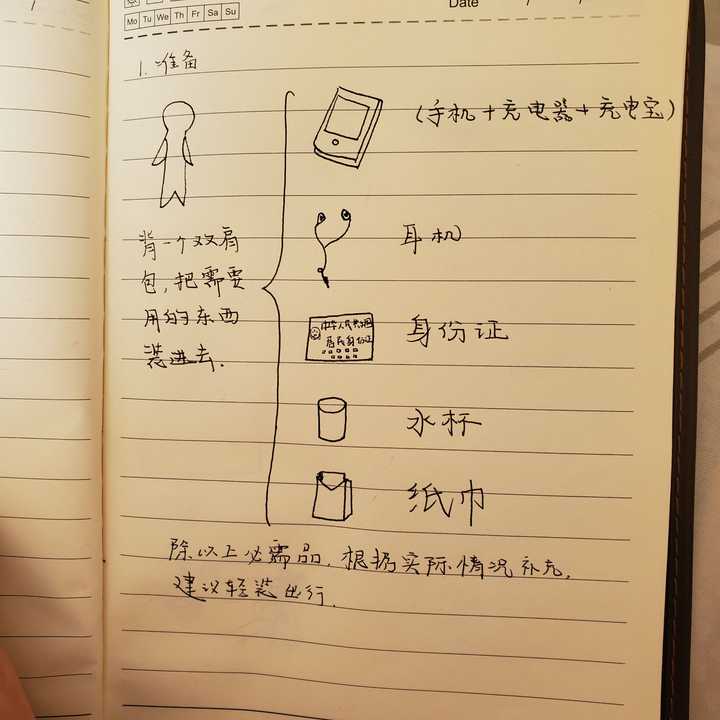 Date / /
Mo Tu We Th Fr Sa Su
1. 准备
(手机+充电器+充电宝)
背一个双肩
包,把需要
用的东西
装进去.
耳机
中华人民共和国
居民身份证
身份证
水杯
纸巾
除以上必需品,根据实际情况补充,
建议轻装出行.